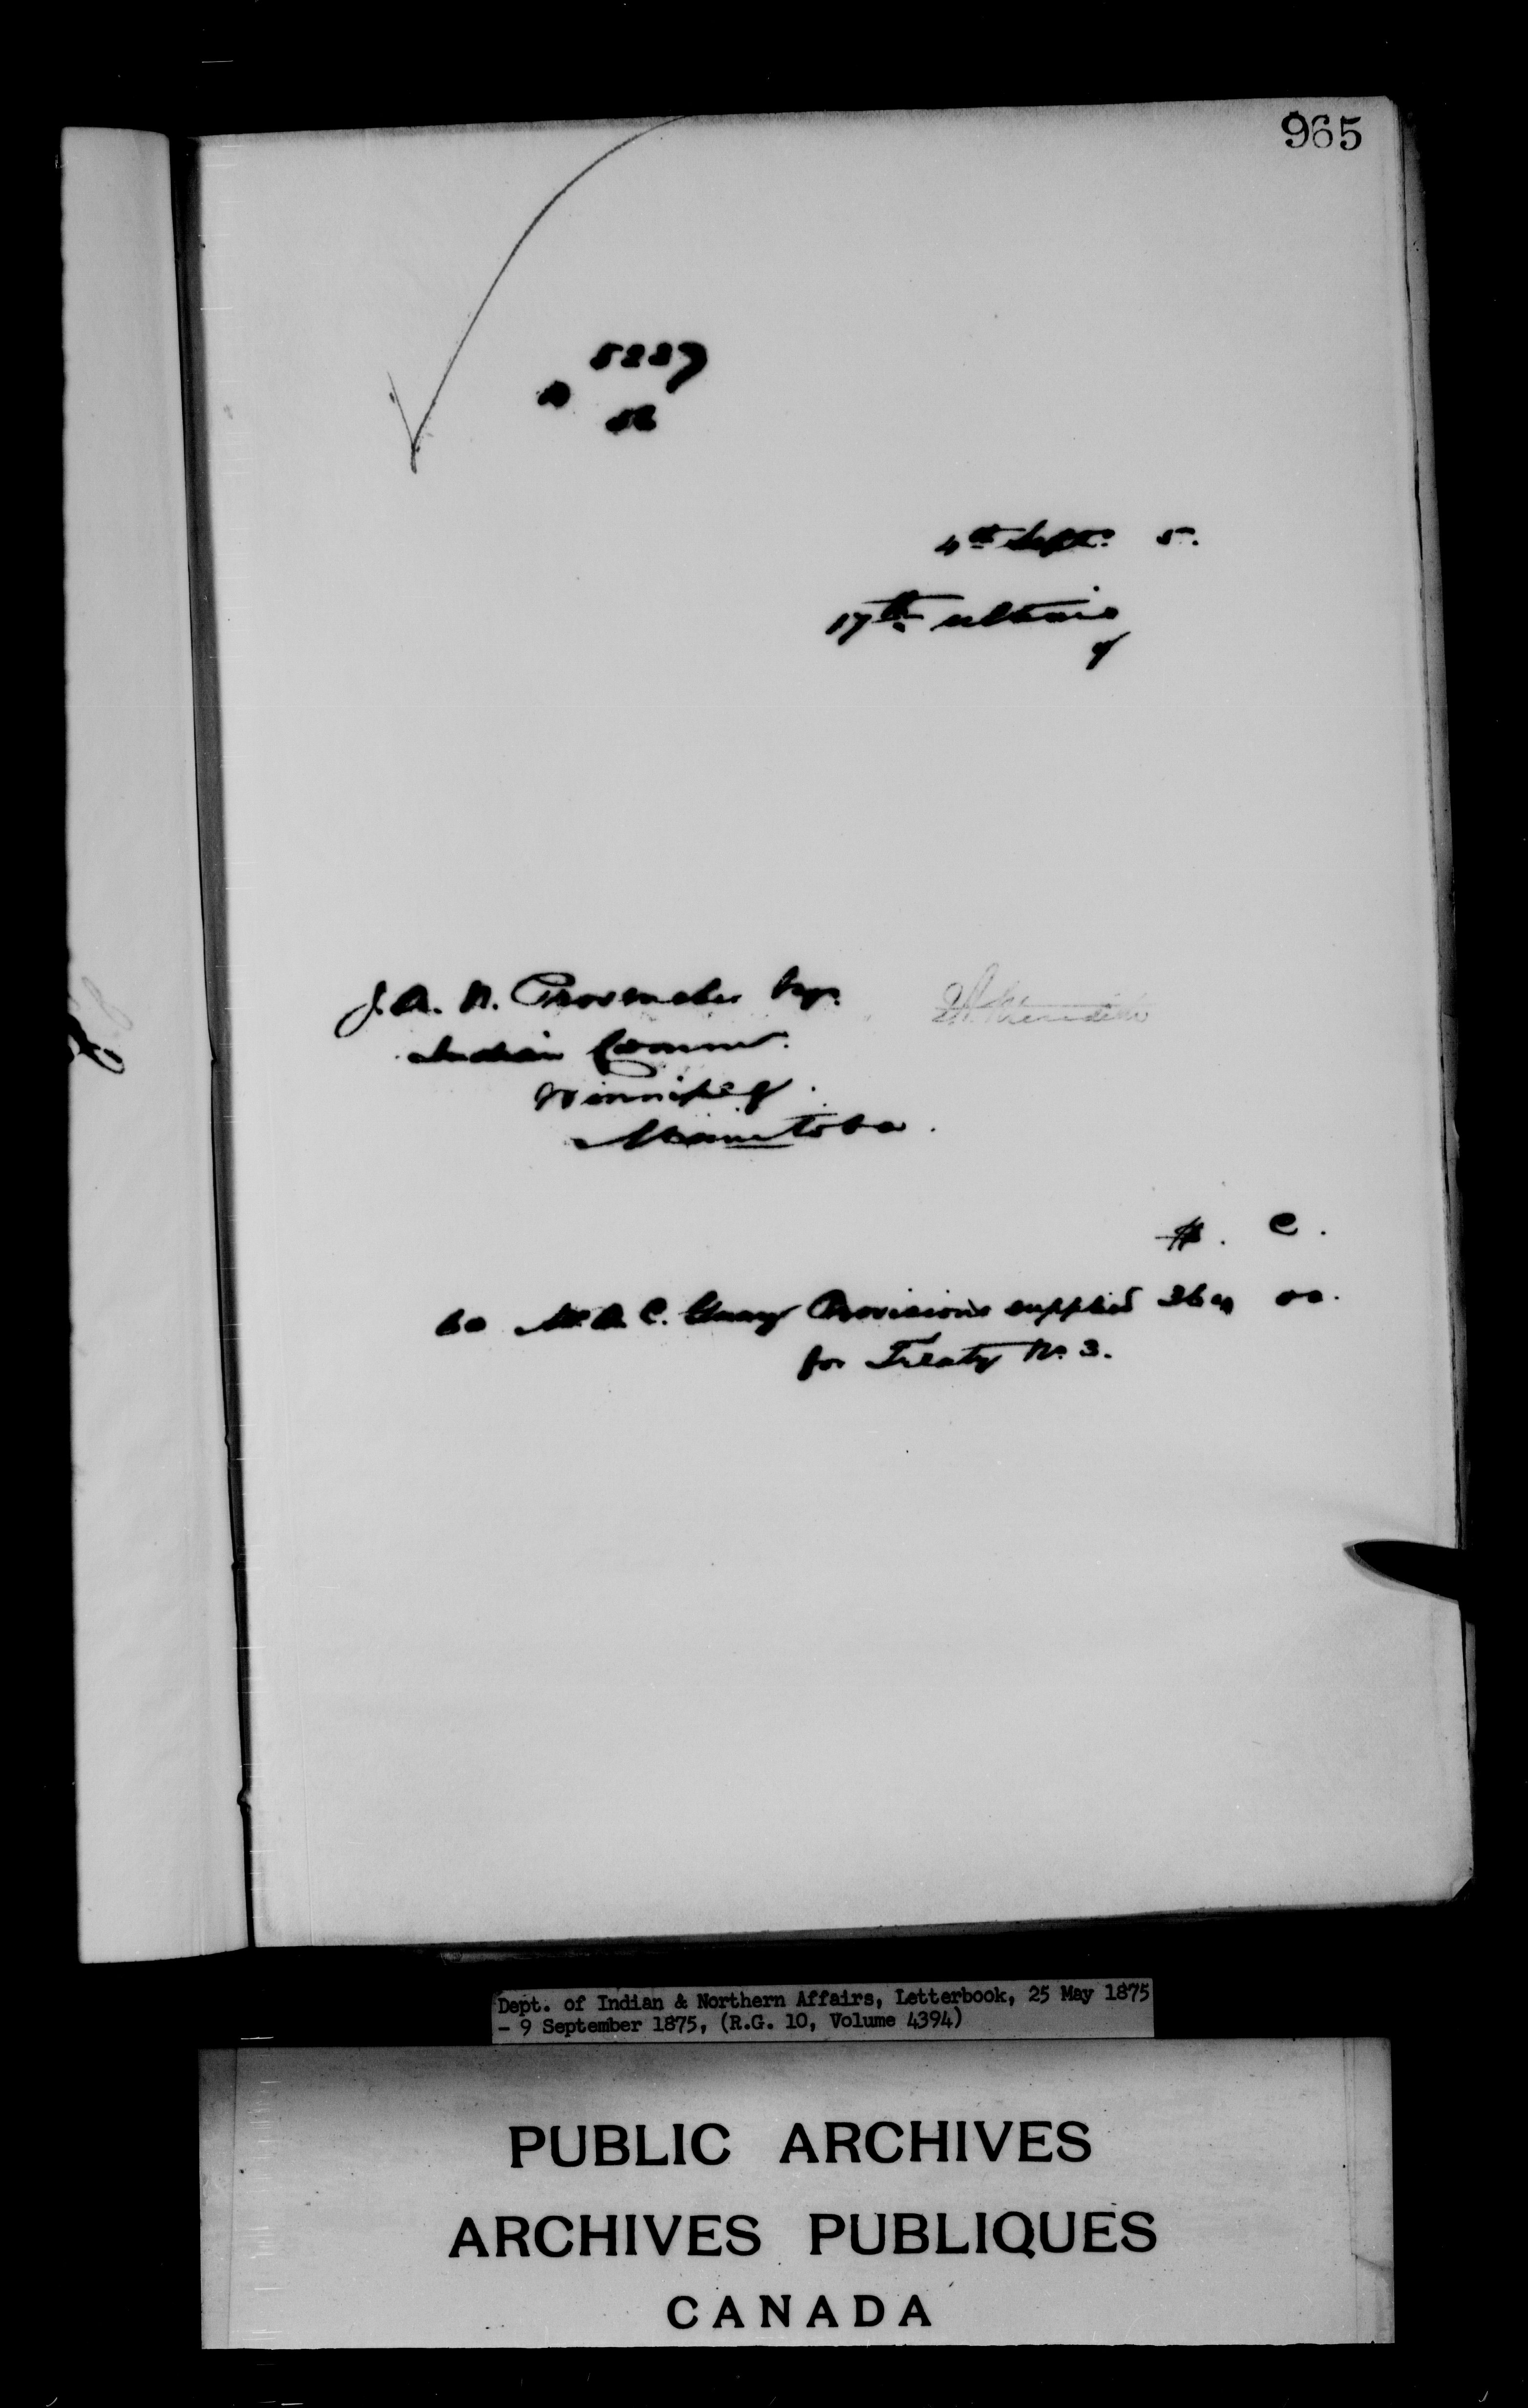 965
5227
4th Sept. 5.
17th ultimo
J. A. N. Provencher Esqr.
Indian Commr.
Winnipeg.
Manitoba.
$. C.
A. C. Provisions supplied 00.
for Treaty No. 3.
Dept. of Indian & Northern Affairs, Letterbook, 25 May 1875
- 9 September 1875, (R.G. 10, Volume 4394)
PUBLIC ARCHIVES
ARCHIVES PUBLIQUES
CANADA